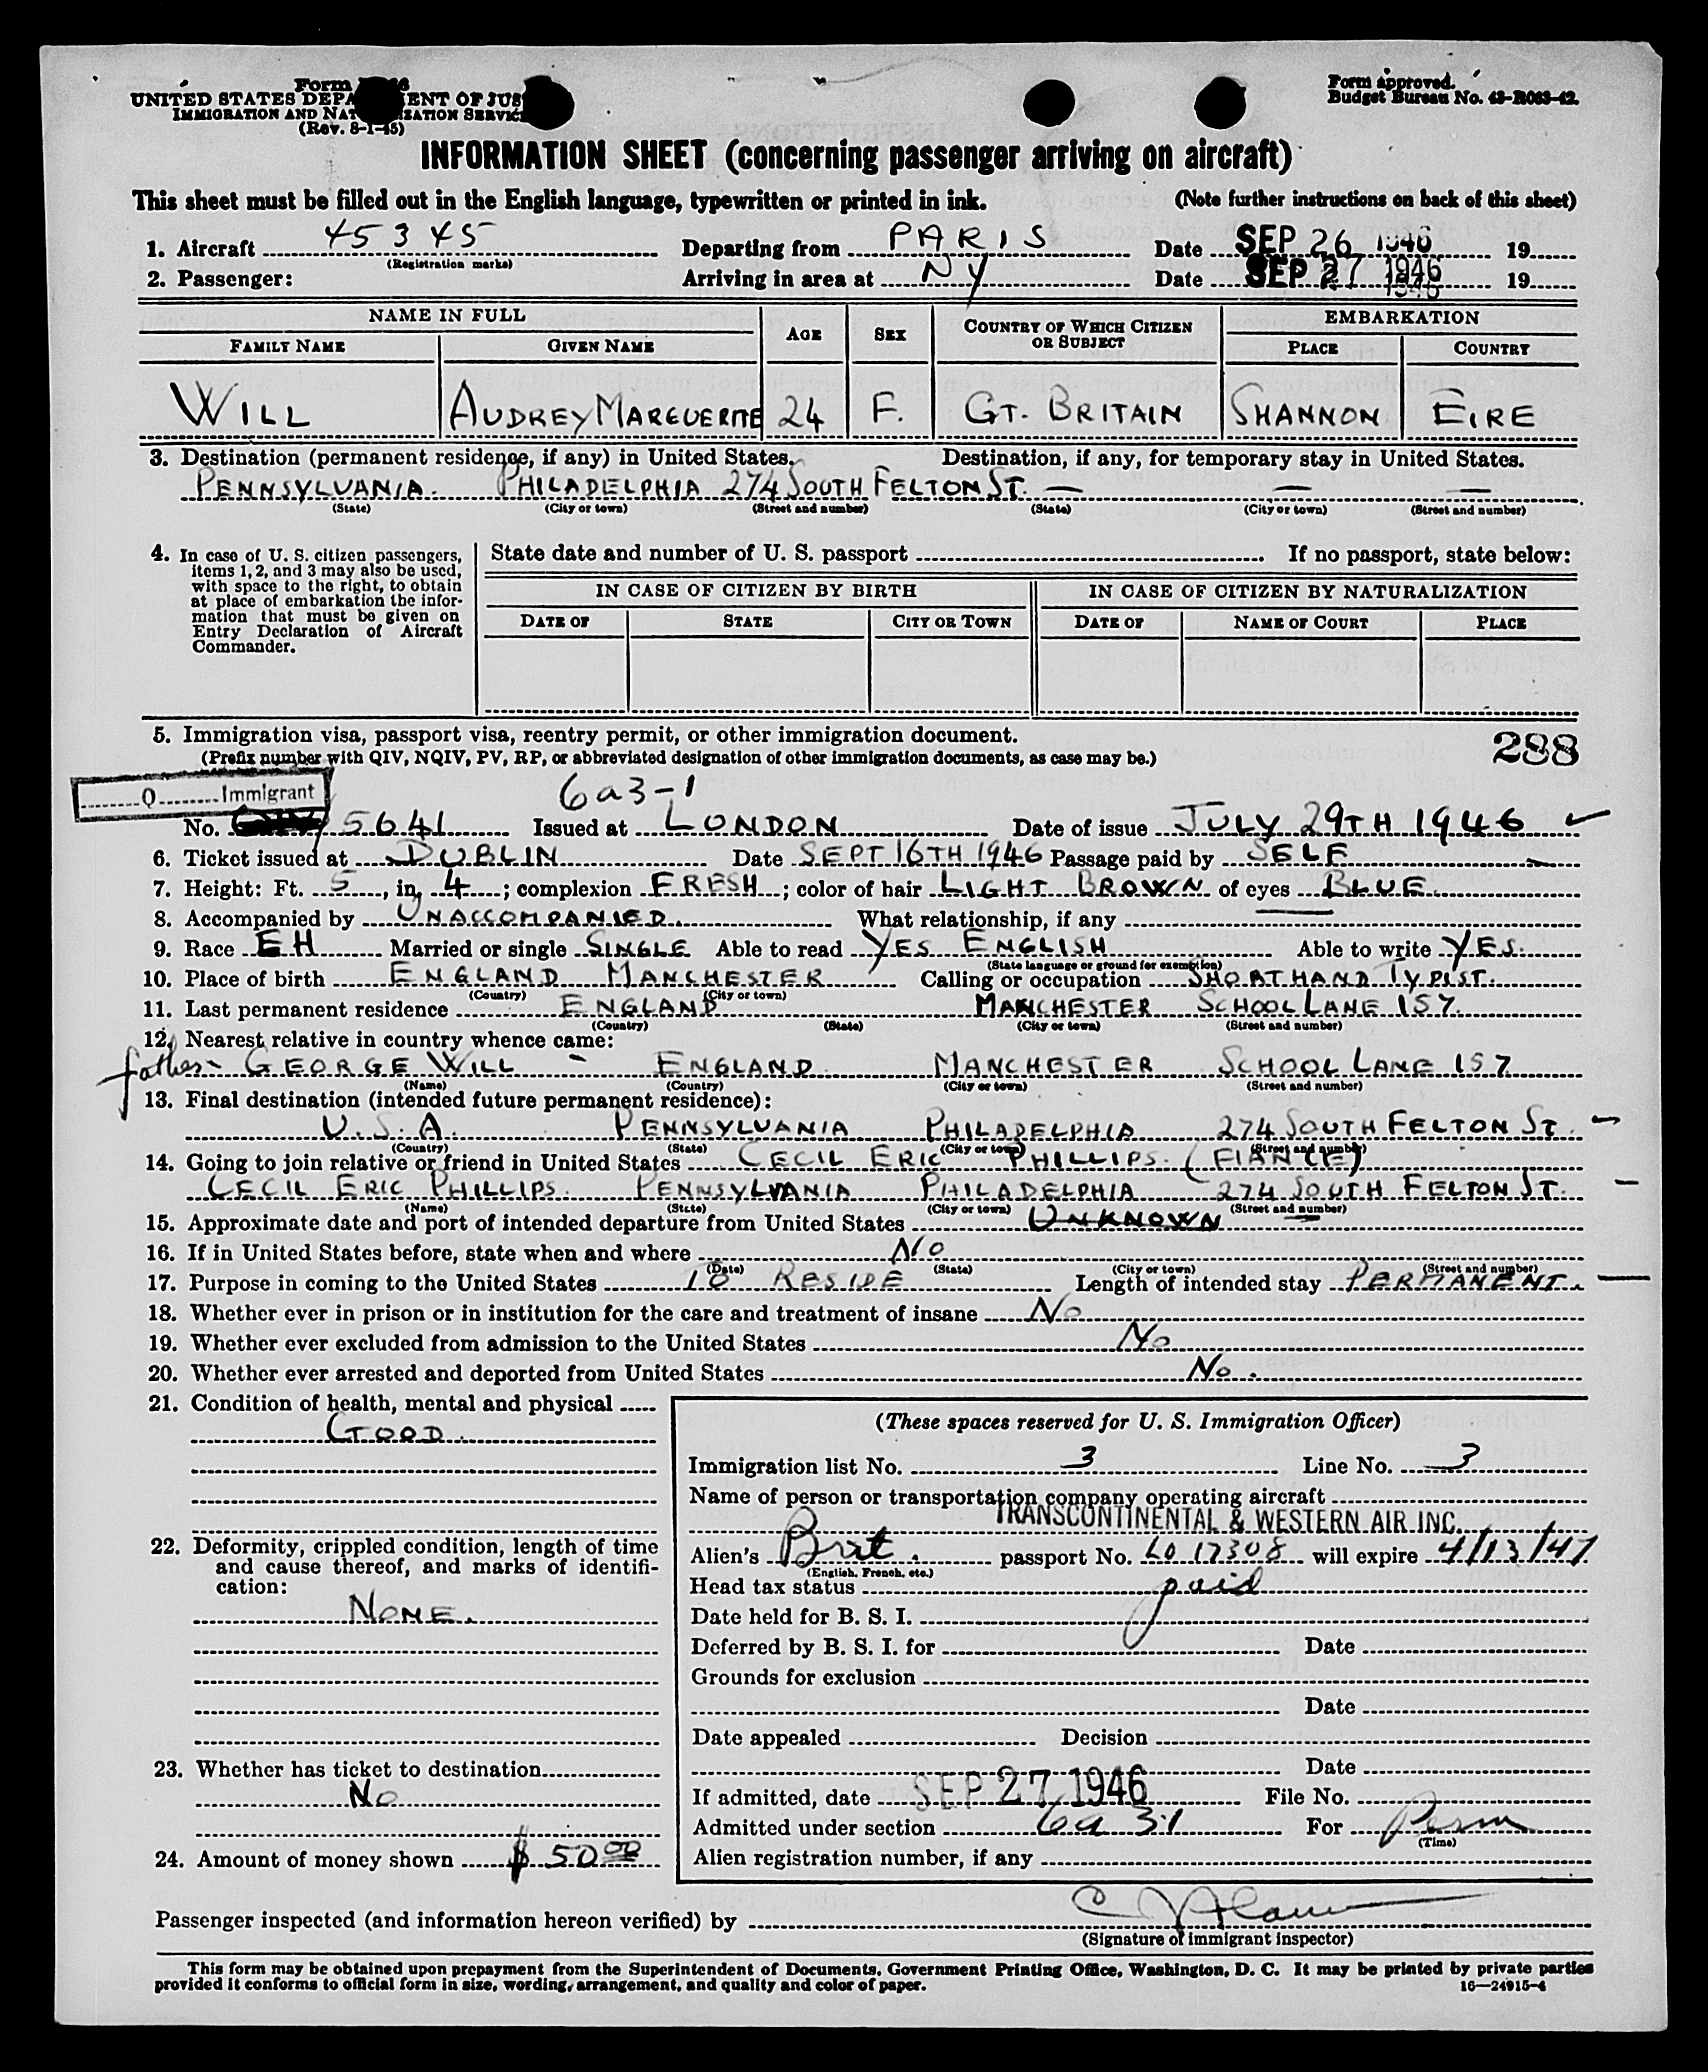 Form
UNITED STATES DEPA ENT OF JUS
IMMIGRATION AND NAT IZATION SERVIC
(Rev. 8-1-45)
Form approved.
Budget Bureau No. 43-R063-42.
INFORMATION SHEET (concerning passenger arriving on aircraft)
This sheet must be filled out in the English language, typewritten or printed in ink. (Note further instructions on back of this sheet)
1. Aircraft 45345 Departing from PARIS Date SEP 26 1946 19
(Registration marks)
2. Passenger: Arriving in area at NY Date SEP 27 1946 19
NAME IN FULL AGE SEX COUNTRY OF WHICH CITIZEN OR SUBJECT EMBARKATION
FAMILY NAME GIVEN NAME PLACE COUNTRY
WILL AUDREY MARGUERITE 24 F. GT. BRITAIN SHANNON EIRE
3. Destination (permanent residence, if any) in United States. Destination, if any, for temporary stay in United States.
PENNSYLVANIA. PHILADELPHIA 274 SOUTH FELTON ST. — — —
(State) (City or town) (Street and number) (State) (City or town) (Street and number)
4. In case of U. S. citizen passengers, items 1, 2, and 3 may also be used, with space to the right, to obtain at place of embarkation the information that must be given on Entry Declaration of Aircraft Commander.
State date and number of U. S. passport If no passport, state below:
IN CASE OF CITIZEN BY BIRTH IN CASE OF CITIZEN BY NATURALIZATION
DATE OF STATE CITY OR TOWN DATE OF NAME OF COURT PLACE
5. Immigration visa, passport visa, reentry permit, or other immigration document.
(Prefix number with QIV, NQIV, PV, RP, or abbreviated designation of other immigration documents, as case may be.) 288
Q Immigrant 6a3-1
No. 5641 Issued at LONDON Date of issue JULY 29TH 1946 ✓
6. Ticket issued at DUBLIN Date SEPT 16TH 1946 Passage paid by SELF
7. Height: Ft. 5, in. 4; complexion FRESH; color of hair LIGHT BROWN of eyes BLUE.
8. Accompanied by UNACCOMPANIED. What relationship, if any —
9. Race EH Married or single SINGLE Able to read YES ENGLISH Able to write YES.
(State language or ground for exemption)
10. Place of birth ENGLAND MANCHESTER Calling or occupation SHORTHAND TYPIST.
(Country) (City or town)
11. Last permanent residence ENGLAND MANCHESTER SCHOOL LANE 157.
(Country) (State) (City or town) (Street and number)
12. Nearest relative in country whence came:
father - GEORGE WILL - ENGLAND MANCHESTER SCHOOL LANE 157
(Name) (Country) (City or town) (Street and number)
13. Final destination (intended future permanent residence):
U.S.A. PENNSYLVANIA PHILADELPHIA 274 SOUTH FELTON ST. -
(Country) (State) (City or town) (Street and number)
14. Going to join relative or friend in United States CECIL ERIC PHILLIPS. (FIANCE)
CECIL ERIC PHILLIPS. PENNSYLVANIA PHILADELPHIA 274 SOUTH FELTON ST. —
(Name) (State) (City or town) (Street and number)
15. Approximate date and port of intended departure from United States UNKNOWN —
16. If in United States before, state when and where NO
(Date) (State) (City or town) (Street and number)
17. Purpose in coming to the United States TO RESIDE Length of intended stay PERMANENT. —
18. Whether ever in prison or in institution for the care and treatment of insane No
19. Whether ever excluded from admission to the United States No
20. Whether ever arrested and deported from United States No.
21. Condition of health, mental and physical
GOOD.
22. Deformity, crippled condition, length of time and cause thereof, and marks of identification:
NONE.
23. Whether has ticket to destination
No
24. Amount of money shown $ 50 00
(These spaces reserved for U. S. Immigration Officer)
Immigration list No. 3 Line No. 3
Name of person or transportation company operating aircraft
TRANSCONTINENTAL & WESTERN AIR INC.
Alien's Brit. passport No. LO 17308 will expire 4/13/47
(English, French, etc.)
Head tax status paid
Date held for B. S. I.
Deferred by B. S. I. for Date
Grounds for exclusion
Date
Date appealed Decision
Date
If admitted, date SEP 27 1946 File No.
Admitted under section 6a 31 For Perm
(Time)
Alien registration number, if any
Passenger inspected (and information hereon verified) by
(Signature of immigrant inspector)
This form may be obtained upon prepayment from the Superintendent of Documents, Government Printing Office, Washington, D. C. It may be printed by private parties
provided it conforms to official form in size, wording, arrangement, and quality and color of paper. 16—24915-4